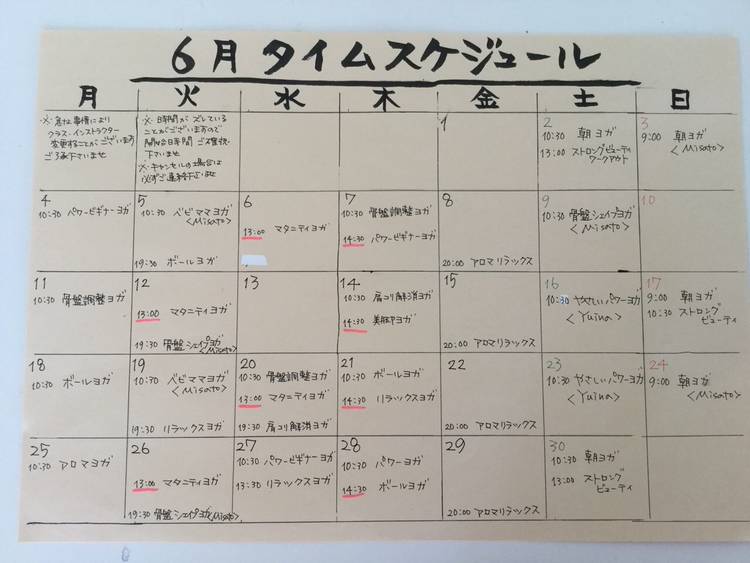 6月 タイムスケジュール
月 火 水 木 金 土 日
※急な事情により
クラス・インストラクター
変更することがございます
ご了承下さいませ
※日時間が ズレている
ことがございますので
開始日時間 ご確認
下さいませ
※キャンセルの場合は
必ずご連絡下さいませ
1
2
10:30 朝ヨガ
13:00 ストロングビューティ
ワークアウト
3
9:00 朝ヨガ
<Misato>
4
10:30 パワービギナーヨガ
5
10:30 ベビママヨガ
<Misato>
19:30 ボールヨガ
6
13:00 マタニティヨガ
7
10:30 骨盤調整ヨガ
14:30 パワービギナーヨガ
8
20:00 アロマリラックス
9
10:30 骨盤シェイプヨガ
<Misato>
10
11
10:30 骨盤調整ヨガ
12
13:00 マタニティヨガ
19:30 骨盤シェイプヨガ
<Misato>
13
14
10:30 肩コリ解消ヨガ
14:30 美脚ヨガ
15
20:00 アロマリラックス
16
10:30 やさしいパワーヨガ
<Yuina>
17
9:00 朝ヨガ
10:30 ストロング
ビューティ
18
10:30 ボールヨガ
19
10:30 ベビママヨガ
<Misato>
19:30 リラックスヨガ
20
10:30 骨盤調整ヨガ
13:00 マタニティヨガ
19:30 肩コリ解消ヨガ
21
10:30 ボールヨガ
14:30 リラックスヨガ
22
20:00 アロマリラックス
23
10:30 やさしいパワーヨガ
<Yuina>
24
9:00 朝ヨガ
<Misato>
25
10:30 アロマヨガ
26
13:00 マタニティヨガ
19:30 骨盤シェイプヨガ<Misato>
27
10:30 パワービギナーヨガ
13:30 リラックスヨガ
28
10:30 パワーヨガ
14:30 ボールヨガ
29
20:00 アロマリラックス
30
10:30 朝ヨガ
13:00 ストロング
ビューティ